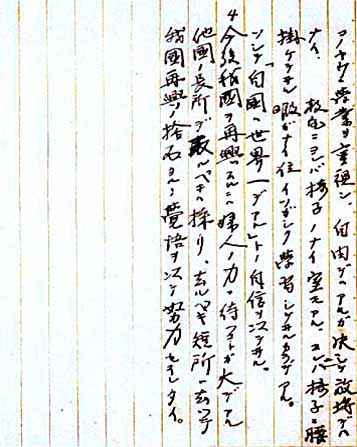 コノヤウニ学業ヲ重視シ自由デハアルガ決シテ放埒デハ
ナイ。 教室ニヨレバ椅子ノナイ室モアル、 椅子ニ腰
掛ケテヰル暇ガナイ位イソガシク学習シテヰルカラデアル。
ソシテ「自国ハ世界一デアル」トノ自信ヲ以テヰル。
4 今後我國ヲ再興スルニハ婦人ノ力ニ待ツコトガ大デアル
他國ノ長所デ取ルベキハ採リ、去ルベキ短所ハ去ッテ
我國再興ノ捨石タルノ覚悟ヲ以テ努力シタイ。